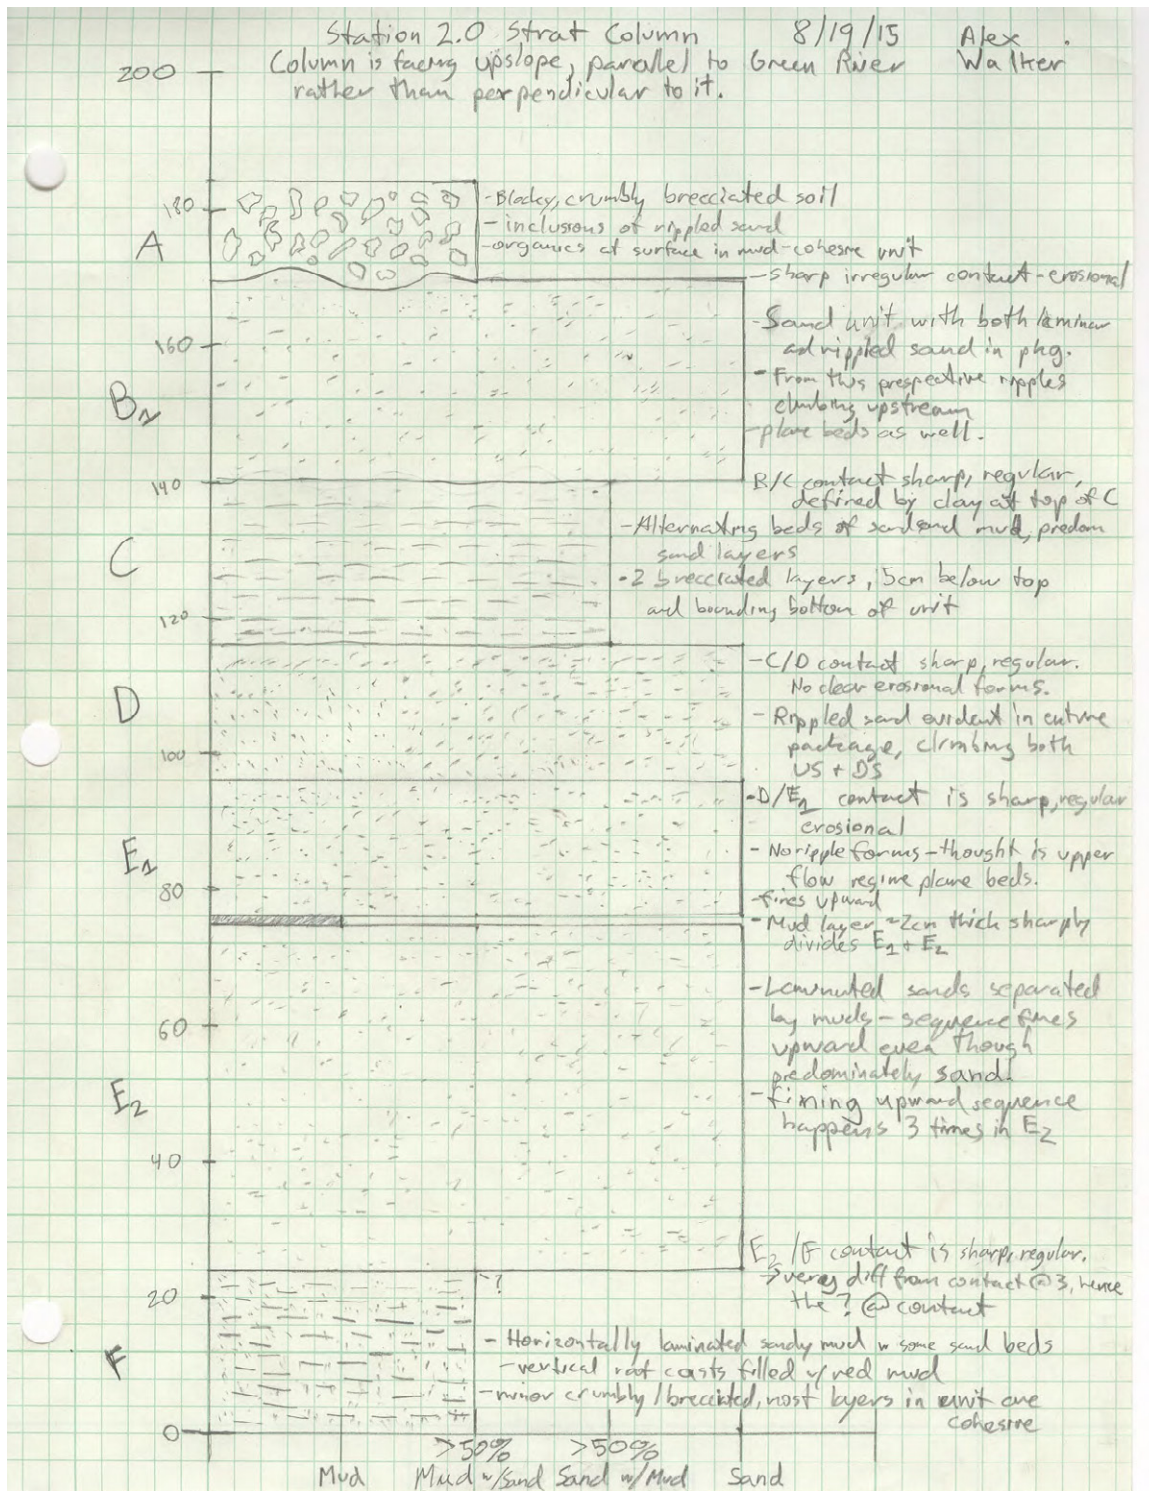 Station 2.0 Strat Column 8/19/15 Alex Walker
Column is facing upslope, parallel to Green River
rather than perpendicular to it.
200
180
A
- Blocky, crumbly brecciated soil
- inclusions of rippled sand
- organics at surface in mud-cohesive unit
- sharp irregular contact - erosional
160
B
- Sand unit with both laminar
and rippled sand in pkg.
- From this prespective ripples
climbing upstream
- plane beds as well.
140
B/C contact sharp, regular,
defined by clay at top of C
C
- Alternating beds of sand and mud, predom
sand layers
- 2 brecciated layers, 5cm below top
and bounding bottom of unit
120
- C/D contact sharp, regular.
No clear erosional forms.
D
- Rippled sand evident in entire
package, climbing both
US + DS
100
- D/E1 contact is sharp, regular
erosional
E1
- No ripple forms - thought is upper
flow regime plane beds.
80
- fines upward
- Mud layer ~2cm thick sharply
divides E1 + E2
- Laminated sands separated
by muds - sequence fines
upward even though
predominately sand.
60
E2
- fining upward sequence
happens 3 times in E2
40
E2/F contact is sharp, regular.
→ very diff from contact @ 3, hence
the ? @ contact
?
20
F
- Horizontally laminated sandy mud w some sand beds
- vertical root casts filled w/ red mud
- minor crumbly/brecciated, most layers in unit are
cohesive
0
>50% >50%
Mud Mud w/Sand Sand w/Mud Sand